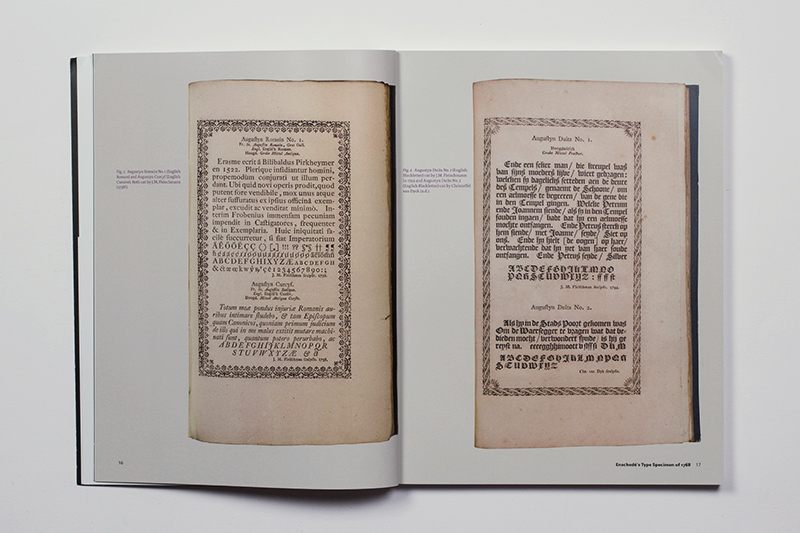 Fig. 1. Augustyn Romein No. 1 (English
Roman) and Augustyn Curcyf (English
Cursive). Both cut by J.M. Fleischmann
Augustyn Romein No. 1.
Fr. St. Augustin Romain, Gros Oeil.
Engl. English Roman.
Hoogd. Grobe Mittel Antiqua.
Erasme ecrit à Bilibaldus Pirkheymer
en 1522. Plerique insidiantur homini,
propemodum conjurati ut illum per-
dant. Ubi quid novi operis prodit, quod
putent fore vendibile, mox unus atque
alter suffuratus ex ipsius officina exem-
plar, excudit ac venditat minimò. In-
terim Frobenius immensam pecuniam
impendit in Castigatores, frequenter
& in Exemplaria. Huic iniquitati fa-
cile succurretur, si fiat Imperatorium
ABCDEFGHIJKLMNOPQR
J. M. Fleischman Sculpsit. 1738.
Augustyn Curcyf.
Fr. St. Augustin Italique.
Engl. English Cursiv.
Hoogd. Mittel Antiqua Cursiv.
Totum meæ pondus injuriæ Romanis au-
ribus intimare studebo, & tam Episcopum
quam Canonicos, quoniam primum judicium
de illis qui in me malus extitit mutare machi-
nati sunt, quantum potero perurbabo, ac
ABCDEFGHIJKLMNOPQR
STUVWXYZÆ & &
J. M. Fleischman Sculpsit. 1738.
16
Fig. 2. Augustyn Duits No. 1 (English
Blackletter) cut by J.M. Fleischmann
in 1744 and Augustyn Duits No. 2
(English Blackletter) cut by Christoffel
van Dyck (n.d.).
Augustyn Duits No. 1.
Hoogduitsch
Grobe Mittel Fractur.
Ende een seker man/ die kreupel was
van sijns moeders lijve/ wiert gedragen:
welcken sy dagelicks setteden aen de deure
des Tempels/ genaemt de Schoone/ om
een aelmoesse te begeeren/ van de gene die
in den Tempel gingen. Welcke Petrum
ende Joannem siende/ als sy in den Tempel
souden ingaen/ badt dat hy een aelmoesse
mochte ontfangen. Ende Petrus sterck op
hem siende/ met Joanne/ seyde/ Siet op
ons. Ende hy hielt [de oogen] op haer/
verwachtende dat hy yet van haer soude
ontfangen. Ende Petrus seyde/ Silver
ABCDEFGHIKLMNO
J. M. Fleischman Sculpsit. 1744.
Augustyn Duits No. 2.
Als hy in de Stads Poort gekomen was
Om de Waersegger te vragen wat dat be-
dieden mocht/ verwoondert synde/ is hy ge
reyst na.
ABCDEFGHIKLMNOPQR
STUVWXYZ
Chr. van Dyk Sculpsit.
Enschedé's Type Specimen of 1768 17